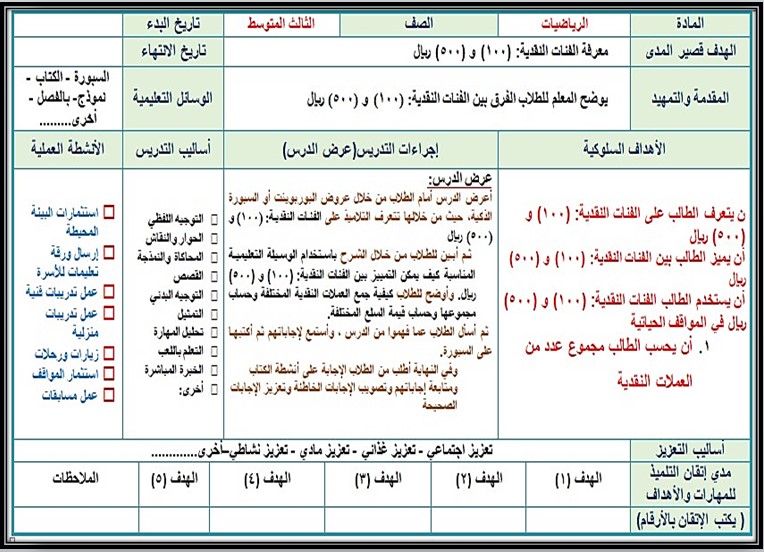 المادة الرياضيات الصف الثالث المتوسط تاريخ البدء
الهدف قصير المدى معرفة الفئات النقدية: (١٠٠) و (٥٠٠) ريال تاريخ الانتهاء
المقدمة والتمهيد يوضح المعلم للطلاب الفرق بين الفئات النقدية: (١٠٠) و (٥٠٠) ريال الوسائل التعليمية
السبورة - الكتاب -
نموذج- بالفصل -
أخرى.........
الأهداف السلوكية إجراءات التدريس(عرض الدرس) أساليب التدريس الأنشطة العملية
ن يتعرف الطالب على الفئات النقدية: (١٠٠) و
(٥٠٠) ريال
أن يميز الطالب بين الفئات النقدية: (١٠٠) و (٥٠٠)
ريال
أن يستخدم الطالب الفئات النقدية: (١٠٠) و (٥٠٠)
ريال في المواقف الحياتية
١. أن يحسب الطالب مجموع عدد من
العملات النقدية
عرض الدرس:
أعرض الدرس أمام الطلاب من خلال عروض البوربوينت أو السبورة
الذكية، حيث من خلالها تتعرف التلاميذ على الفئات النقدية: (١٠٠) و
(٥٠٠) ريال
ثم أبين للطلاب من خلال الشرح باستخدام الوسيلة التعليمية
المناسبة كيف يمكن التمييز بين الفئات النقدية: (١٠٠) و (٥٠٠)
ريال. وأوضح للطلاب كيفية جمع العملات النقدية المختلفة وحساب
مجموعها وحساب قيمة السلع المختلفة.
ثم أسأل الطلاب عما فهموا من الدرس ، وأستمع لإجاباتهم ثم أكتبها
على السبورة.
وفي النهاية أطلب من الطلاب الإجابة على أنشطة الكتاب
ومتابعة إجاباتهم وتصويب الإجابات الخاطئة وتعزيز الإجابات
الصحيحة
□ التوجيه اللفظي
□ الحوار والنقاش
□ المحاكاة والنمذجة
□ القصص
□ التوجيه البدني
□ التمثيل
□ تحليل المهارة
□ التعلم باللعب
□ الخبرة المباشرة
□ أخرى:
□ استثمارات البيئة
المحيطة
□ إرسال ورقة
تعليمات للأسرة
□ عمل تدريبات فنية
□ عمل تدريبات
منزلية
□ زيارات ورحلات
□ استثمار المواقف
□ عمل مسابقات
أساليب التعزيز تعزيز اجتماعي - تعزيز غذائي - تعزيز مادي - تعزيز نشاطي–أخرى.............
مدي إتقان التلميذ
للمهارات والأهداف
الهدف (١) الهدف (٢) الهدف (٣) الهدف (٤) الهدف (٥) الملاحظات
( يكتب الإتقان بالأرقام)